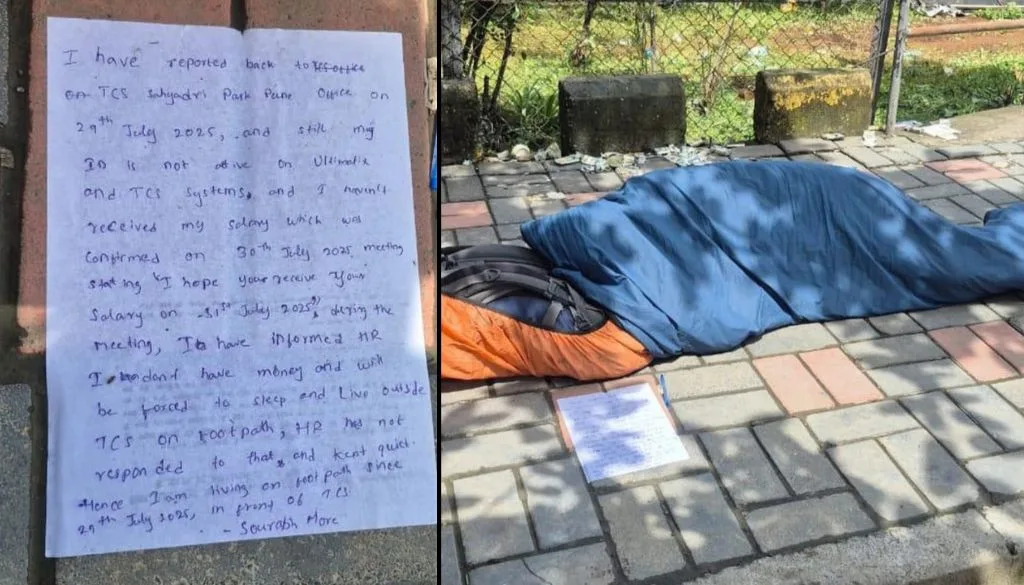 I have reported back to TCS office
on TCS Sahyadri Park Pune Office on
29th July 2025, and still my
ID is not ative on Ultimatix
and TCS systems, and I haven't
received my salary which was
confirmed on 30th July 2025, meeting
stating "I hope your receive your
salary on 31st July 2025", during the
meeting, I have informed HR
I dont have money and will
be forced to sleep and Live outside
TCS on Footpath, HR has not
responded to that, and kept quiet.
Hence I am living on footpath since
29th July 2025, in front of TCS
- Sourabh More